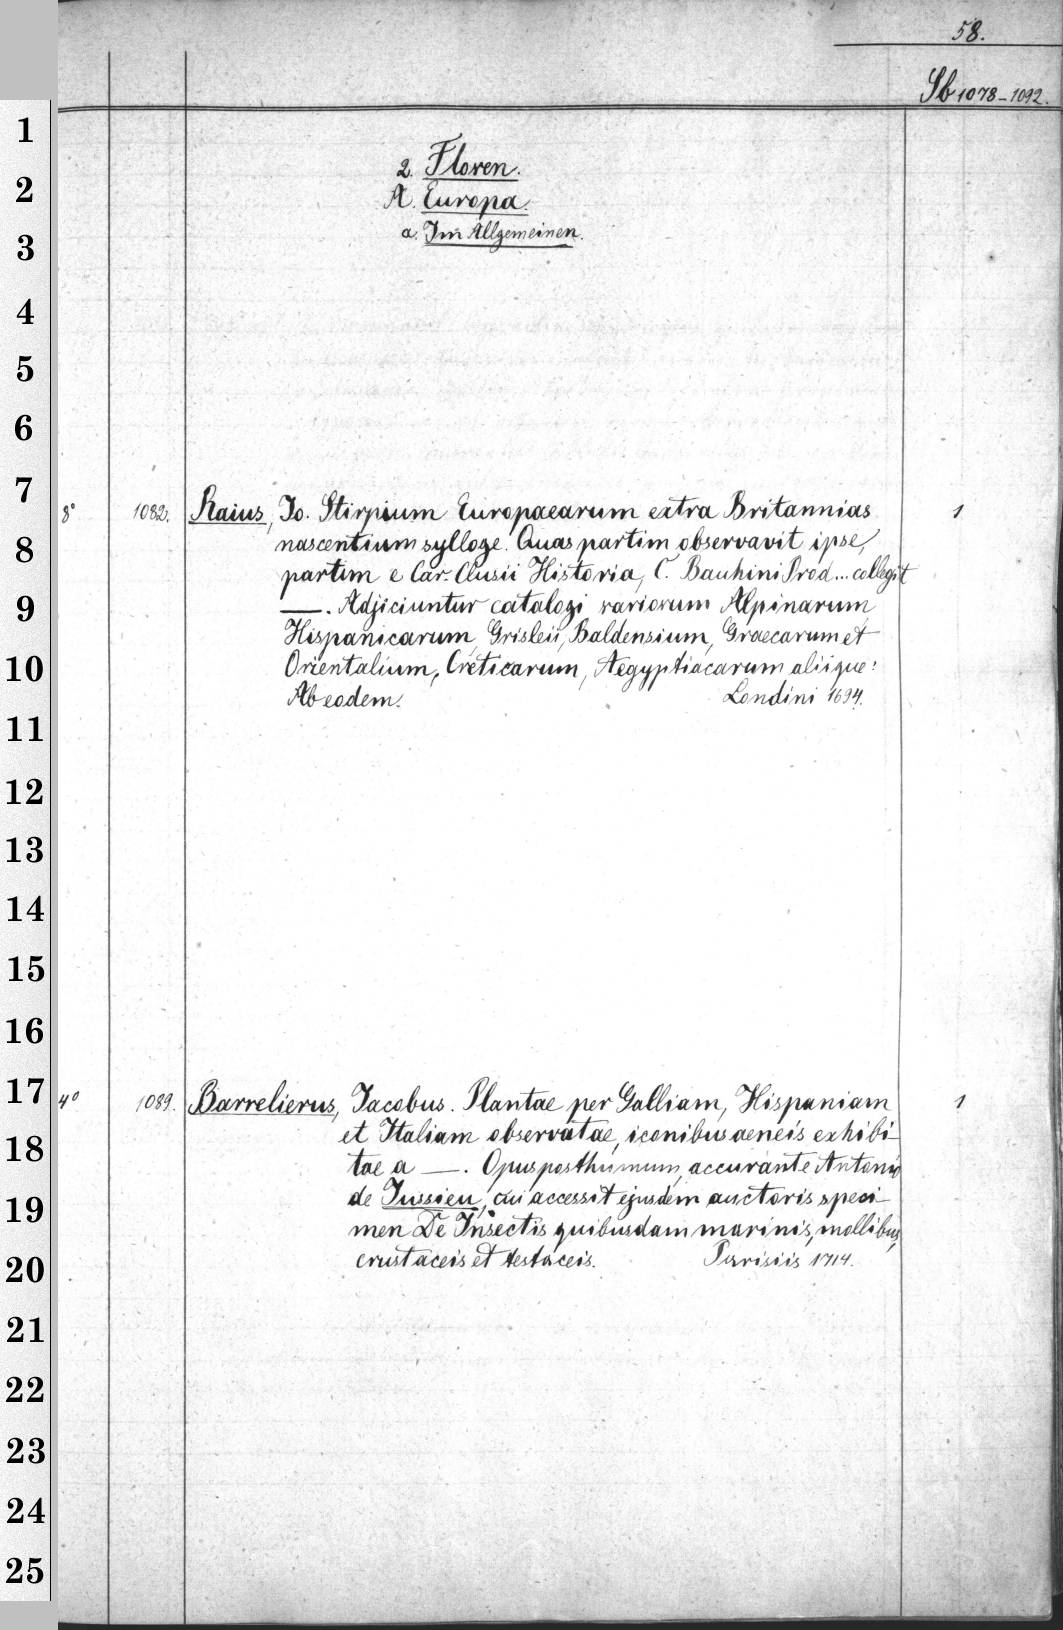 58.
Sb 1078-1092.
2. Floren.
A. Europa.
a. Im Allgemeinen.
8° 1082. Raius, Jo. Stirpium Europaearum extra Britannias 1
nascentium sylloge. Quas partim observavit ipse,
partim e Car. Clusii Historia, C. Bauhini Prod... collegit
—. Adjiciuntur catalogi rariorum Alpinarum
Hispanicarum, Grisleii, Baldensium, Graecarum et
Orientalium, Creticarum, Aegyptiacarum aliique:
Ab eodem. Londini 1694.
4° 1089. Barrelierus, Jacobus. Plantae per Galliam, Hispaniam 1
et Italiam observatae, iconibus aeneis exhibi-
tae a —. Opus posthumum, accurante Antonio
de Jussieu, cui accessit ejusdem auctoris speci-
men De Insectis quibusdam marinis, mollibus,
crustaceis et testaceis. Parisiis 1714.
1
2
3
4
5
6
7
8
9
10
11
12
13
14
15
16
17
18
19
20
21
22
23
24
25